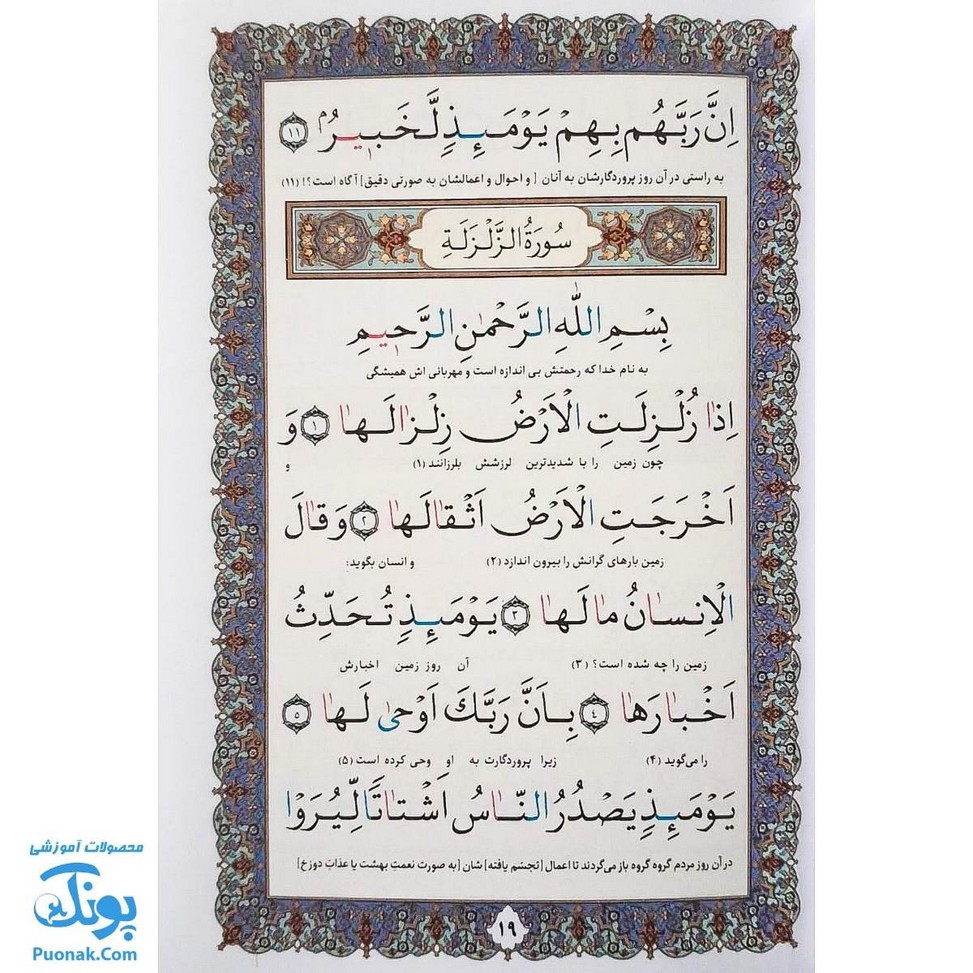 اِنَّ رَبَّهُم بِهِمْ يَوْمَئِذٍ لَّخَبِيرٌۢ ﴿١١﴾
به راستی در آن روز پروردگارشان به آنان [ و احوال و اعمالشان به صورتی دقیق] آگاه است؟! (۱۱)
سُورَةُ الزَّلْزَلَةِ
بِسْمِ اللّٰهِ الرَّحْمٰنِ الرَّحِيمِ
به نام خدا که رحمتش بی اندازه است و مهربانی اش همیشگی
اِذا زُلْزِلَتِ الْاَرْضُ زِلْزالَها ﴿١﴾ وَ
چون زمین را با شدیدترین لرزشش بلرزانند (۱) و
اَخْرَجَتِ الْاَرْضُ اَثْقالَها ﴿٢﴾ وَ قالَ
زمین بارهای گرانش را بیرون اندازد (۲) و انسان بگوید:
الْاِنسانُ ما لَها ﴿٣﴾ يَوْمَئِذٍ تُحَدِّثُ
زمین را چه شده است؟ (۳) آن روز زمین اخبارش
اَخْبارَها ﴿٤﴾ بِاَنَّ رَبَّكَ اَوْحىٰ لَها ﴿٥﴾
را می‌گوید (۴) زیرا پروردگارت به او وحی کرده است (۵)
يَوْمَئِذٍ يَصْدُرُ النّاسُ اَشْتاتًا لِّيُرَوْا
در آن روز مردم گروه گروه باز می‌گردند تا اعمال [تجسّم یافته] شان [به صورت نعمتِ بهشت یا عذابِ دوزخ]
۱۹
محصولات آموزشی
پونک
Puonak.Com